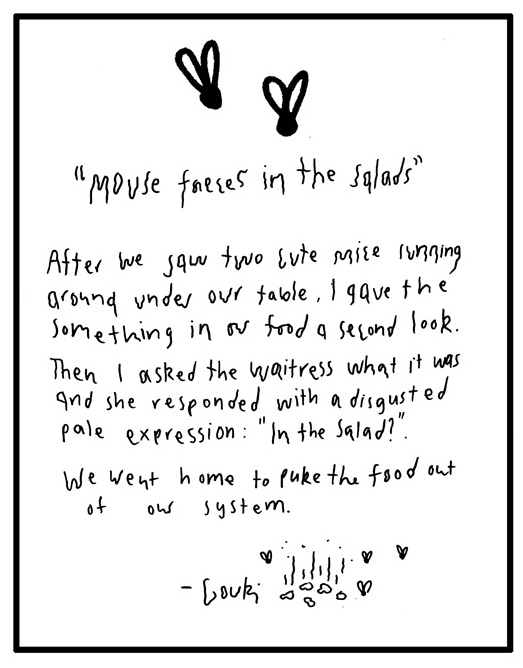 "Mouse faeces in the salads"
After we saw two cute mice running
around under our table, I gave the
something in our food a second look.
Then I asked the waitress what it was
and she responded with a disgusted
pale expression: "In the Salad?".
We went home to puke the food out
of our system.